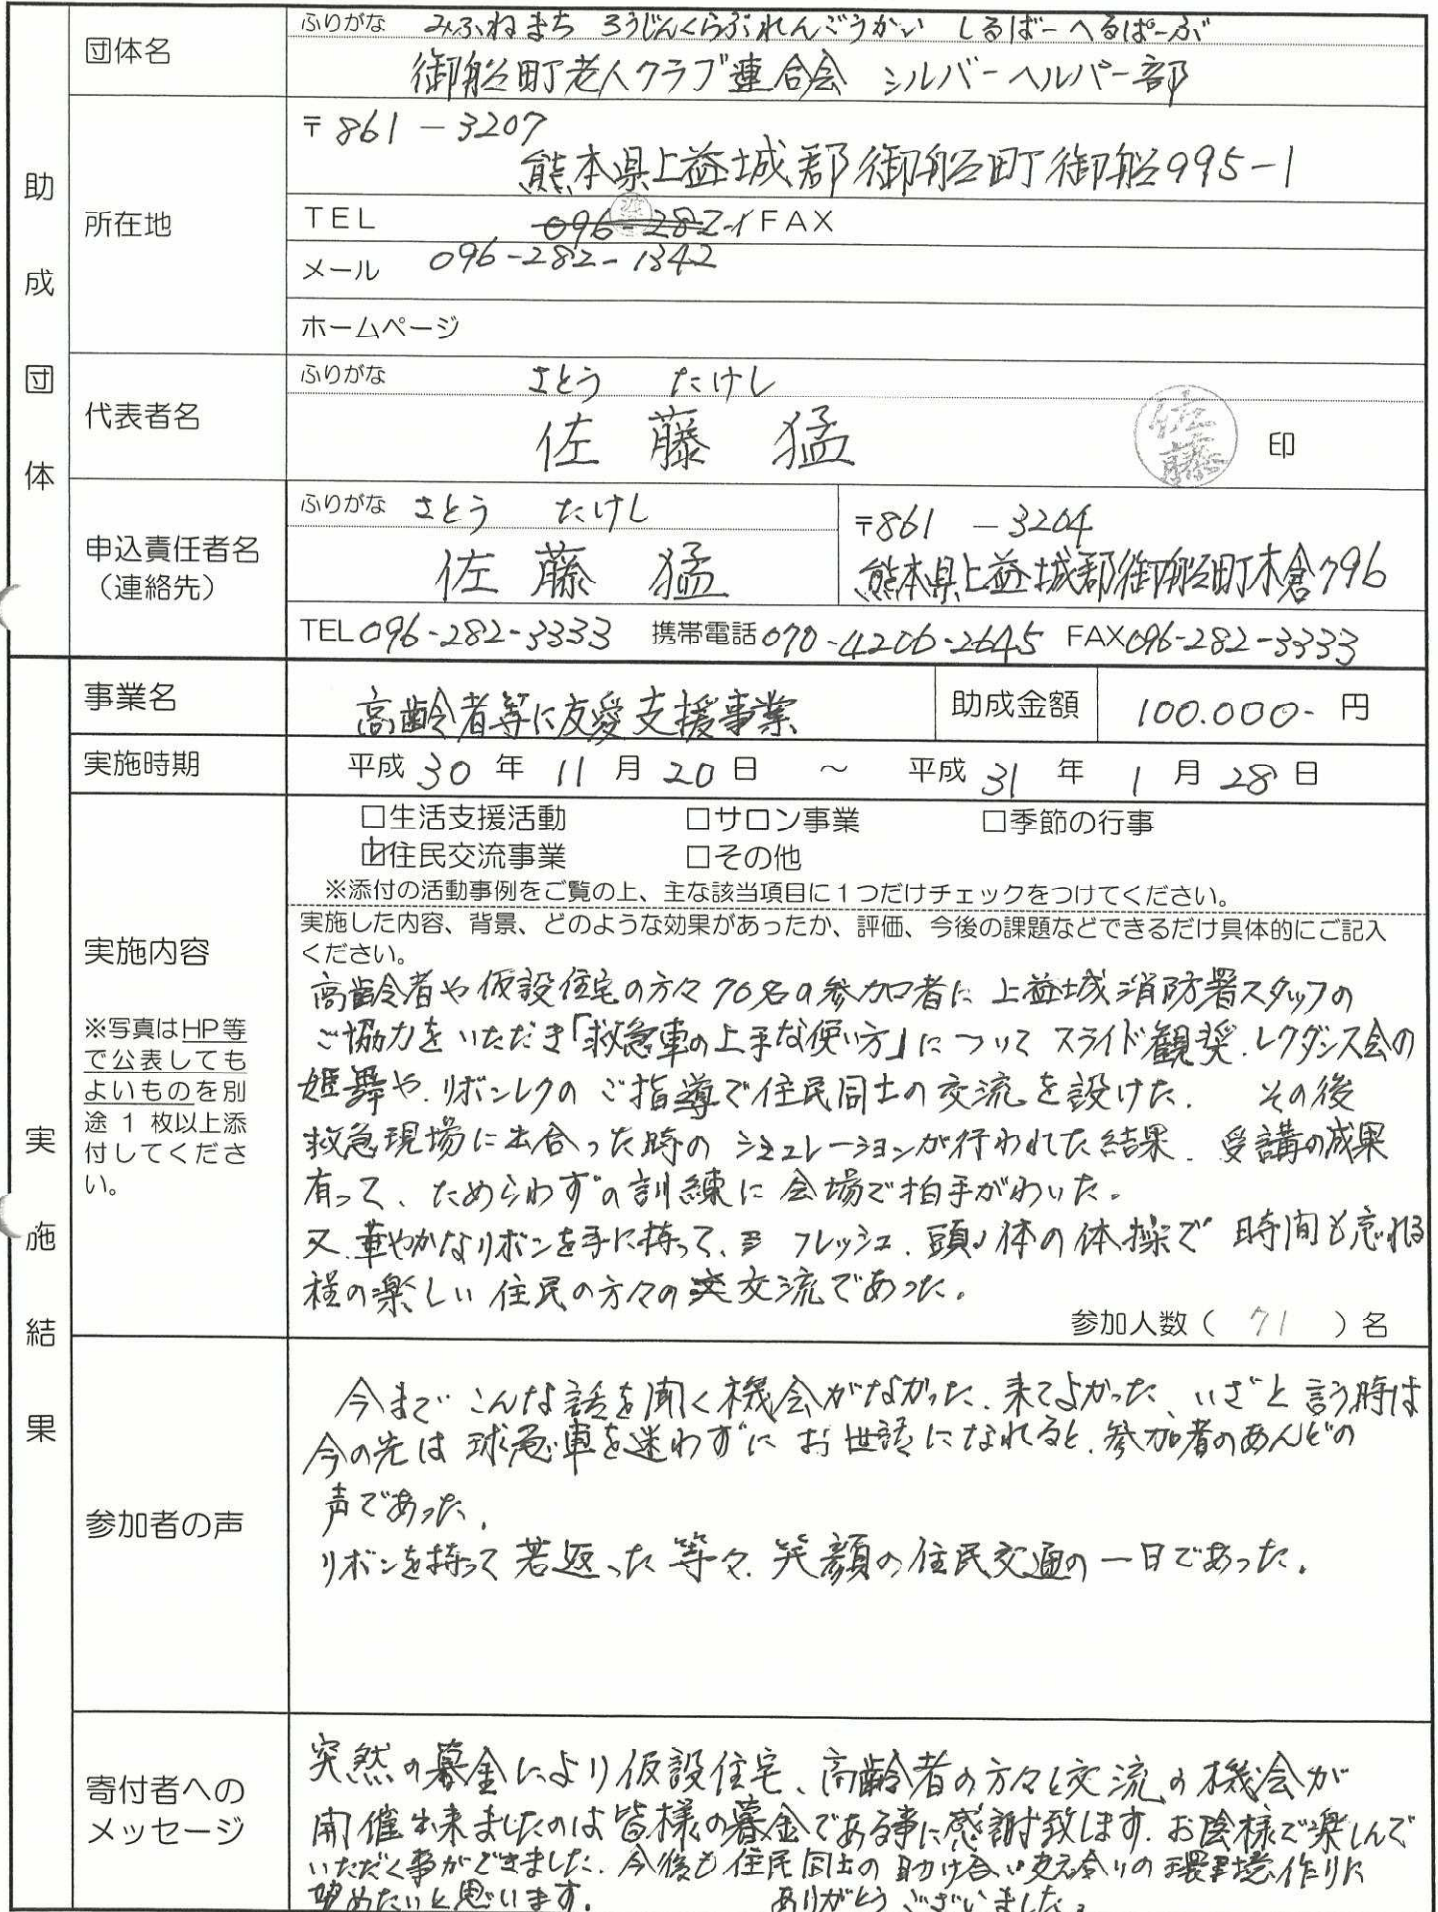 助成団体
団体名
ふりがな みふねまち ろうじんくらぶれんごうかい しるばーへるぱーぶ
御船町老人クラブ連合会 シルバーヘルパー部
所在地
〒861-3207
熊本県上益城郡御船町御船995-1
TEL 096-282-1 FAX
メール 096-282-1342
ホームページ
代表者名
ふりがな さとう たけし
佐藤 猛 佐藤 印
申込責任者名
(連絡先)
ふりがな さとう たけし
佐藤 猛
〒861-3204
熊本県上益城郡御船町木倉796
TEL096-282-3333 携帯電話070-4206-2645 FAX096-282-3333
実施結果
事業名 高齢者等に友愛支援事業 助成金額 100.000- 円
実施時期 平成30年11月20日 ~ 平成31年1月28日
実施内容
※写真はHP等
で公表しても
よいものを別
途1枚以上添
付してくださ
い。
□生活支援活動 □サロン事業 □季節の行事
☑住民交流事業 □その他
※添付の活動事例をご覧の上、主な該当項目に1つだけチェックをつけてください。
実施した内容、背景、どのような効果があったか、評価、今後の課題などできるだけ具体的にご記入
ください。
高齢者や仮設住宅の方々70名の参加者に上益城消防署スタッフの
ご協力をいただき「救急車の上手な使い方」についてスライド観奨.レクダンス会の
姫舞や.リボンレクのご指導で住民同士の交流を設けた. その後
救急現場に出合った時のシミュレーションが行われた結果.受講の成果
有って、ためらわずの訓練に会場で拍手がわいた。
又.華やかなリボンを手に持って、フレッシュ.頭、体の体操で時間も忘れる
程の楽しい住民の方々の交流であった。
参加人数( 71 )名
参加者の声
今までこんな話を聞く機会がなかった.来てよかった、いざと言う時は
今の先は球急車を迷わずにお世話になれると.参加者のあんどの
声であった.
リボンを持って若返った等々.笑顔の住民交通の一日であった.
寄付者への
メッセージ
突然の募金により仮設住宅、高齢者の方々と交流の機会が
開催出来ましたのは皆様の募金である事に感謝致します.お陰様で楽しんで
いただく事ができました.今後も住民同士の助け合い支え合いの環境作りに
望めたいと思います. ありがとうございました.